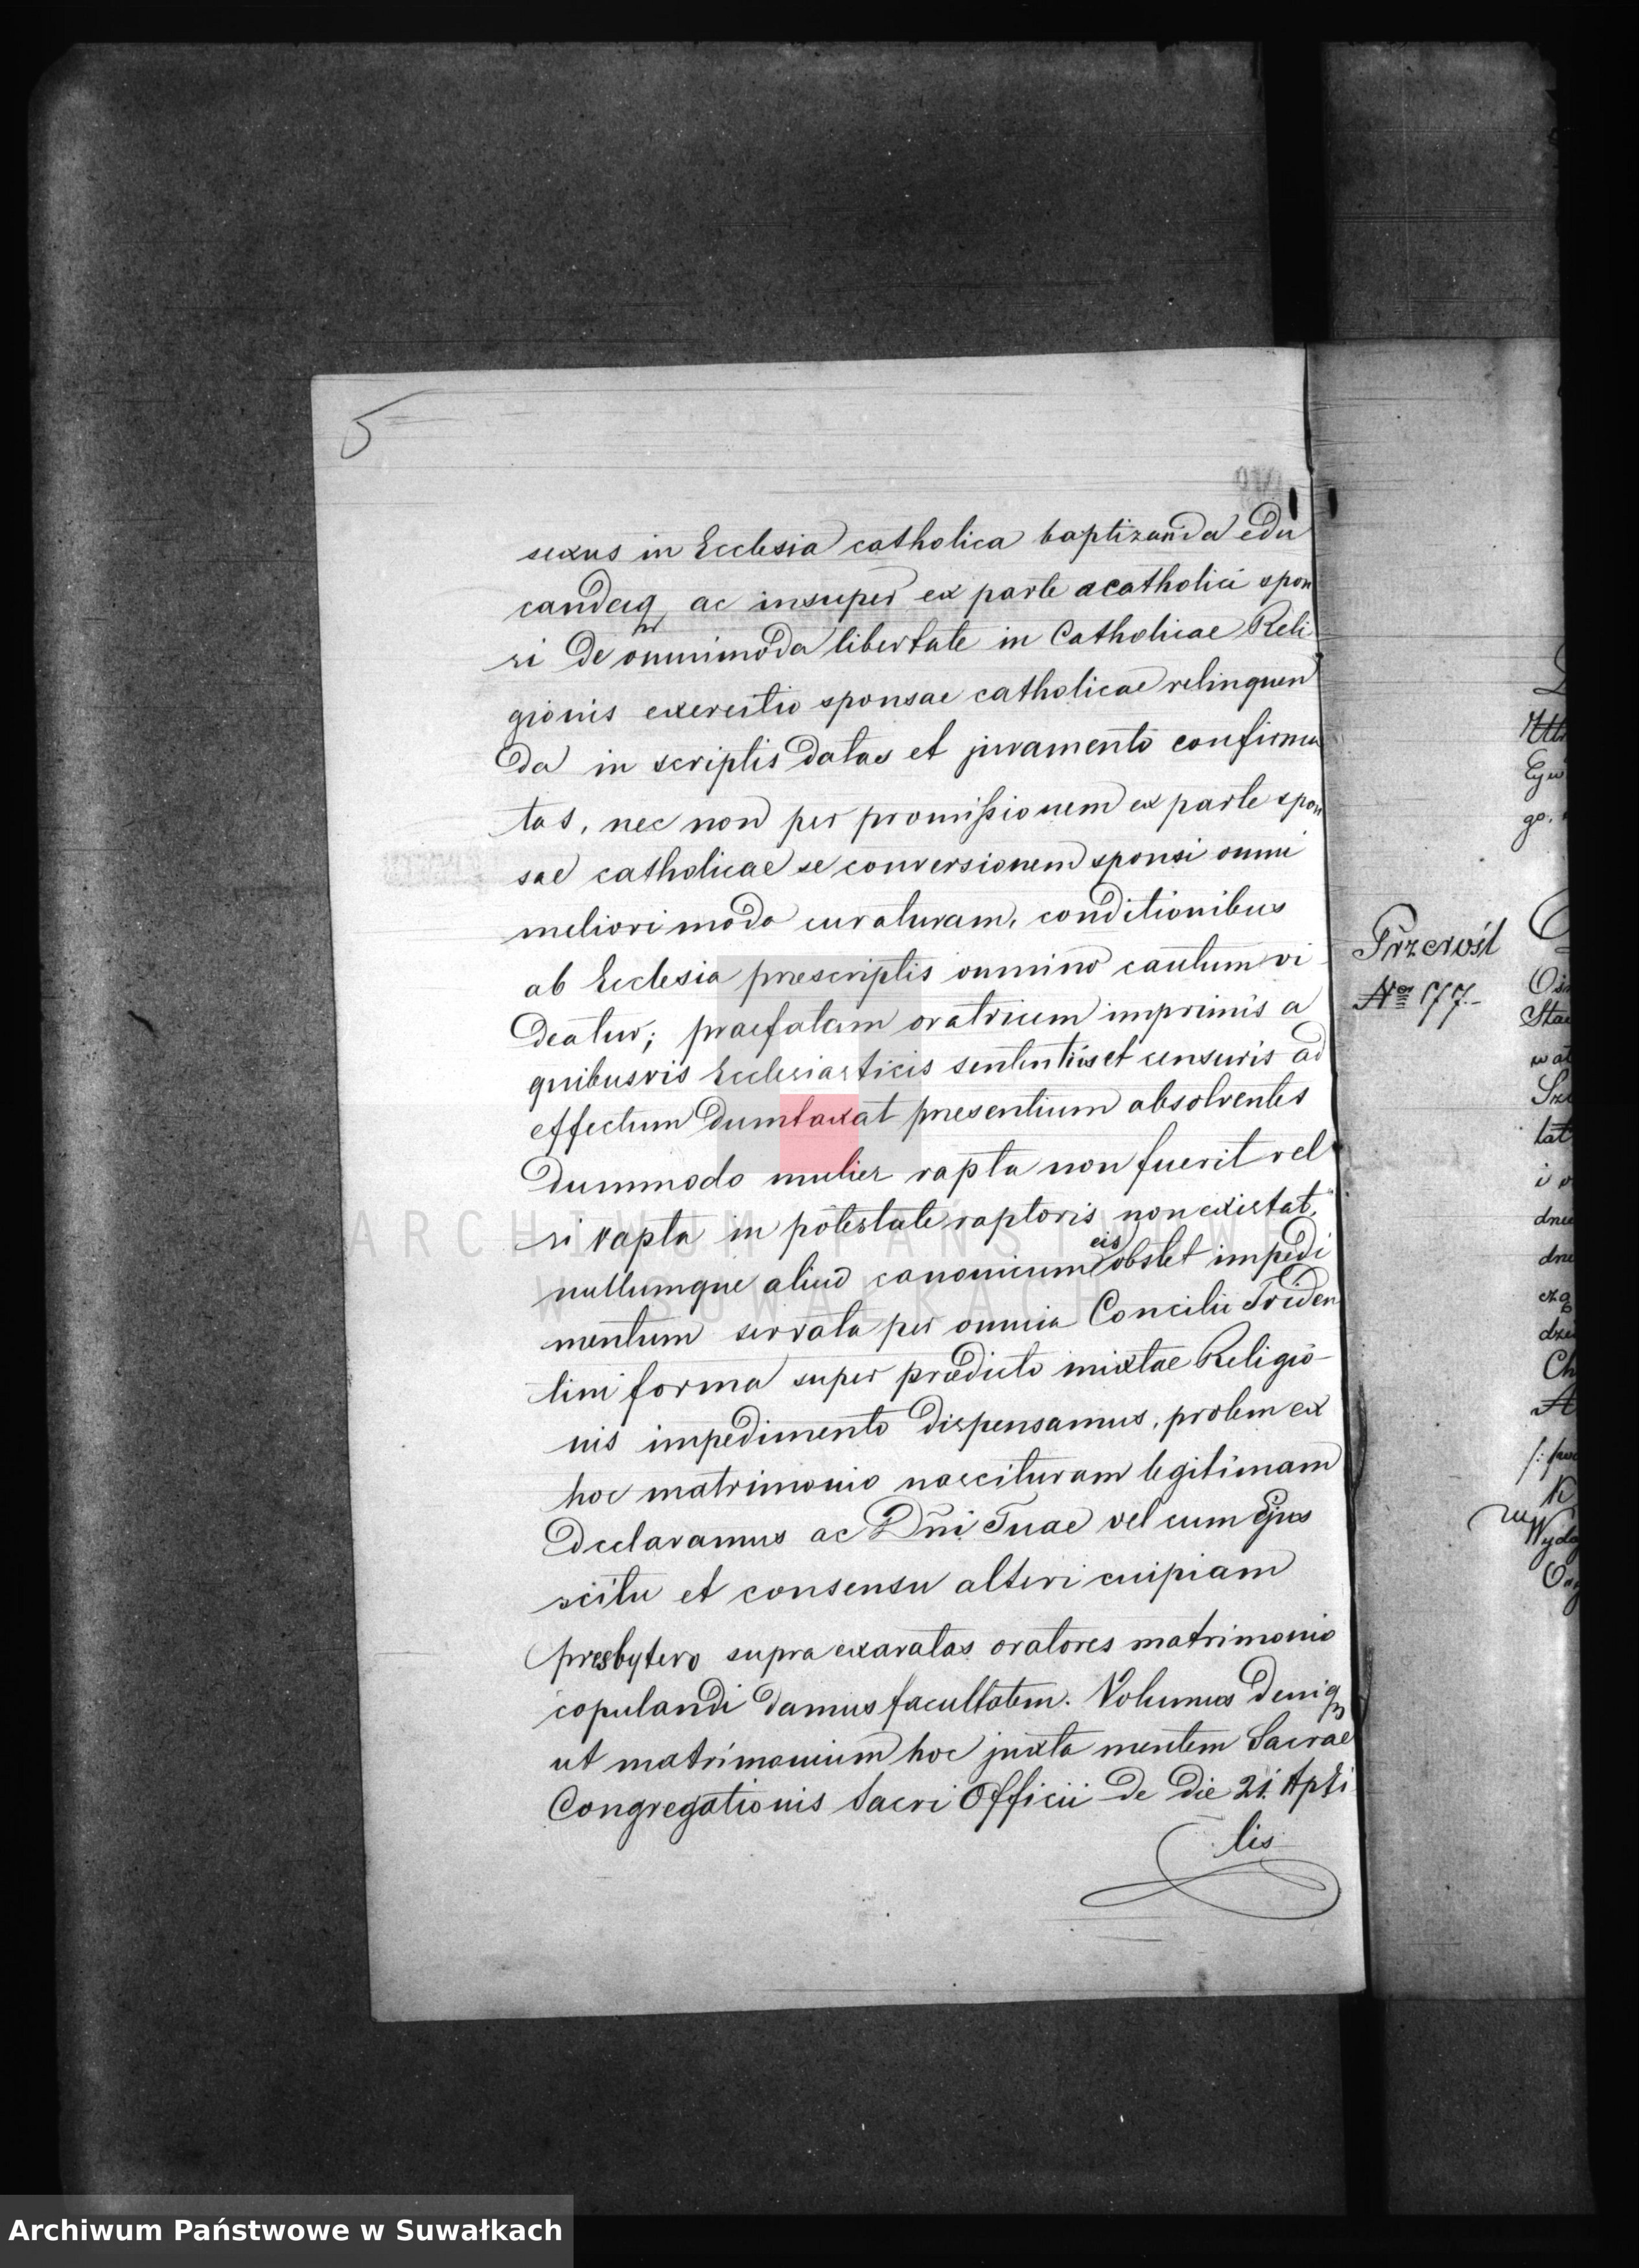 5
sexus in Ecclesia catholica baptizanda edu
candaq, ac insuper ex parte acatholici spon
si de omnimoda libertate in Catholicae Reli
gionis exercitio sponsae catholicae relinquen
da in scriptis datas et juramento confirma
tas, nec non per promissionem ex parte spon
sae catholicae se conversionem sponsi omni
meliori modo curaturam, conditionibus
ab Ecclesia prescriptis omnino cautum vi
deatur; praefatam oratricem imprimis a
quibusvis Ecclesiasticis sententiis et censuris ad
effectum dumtaxat presentium absolventes
dummodo mulier rapta non fuerit vel
si rapta in potestate raptoris non existat,
nullumque aliud canonicum eis obstet impedi
mentum servata per omnia Concilii Triden
tini forma super prædicto mixtae Religio-
nis impedimento dispensamus, prolem ex
hoc matrimonio nascituram legitimam
declaramus ac Dñi Tuae vel cum Ejus
scitu et consensu alteri cuipiam
presbytero supra exaratos oratores matrimonio
copulandi damus facultatem. Volumus deniq
ut matrimonium hoc juxta mentem Sacrae
Congregationis Sacri Officii de die 21. Apri
lis
Przerośl
№ 177.
ARCHIWUM PAŃSTWOWE
W SUWAŁKACH
Archiwum Państwowe w Suwałkach